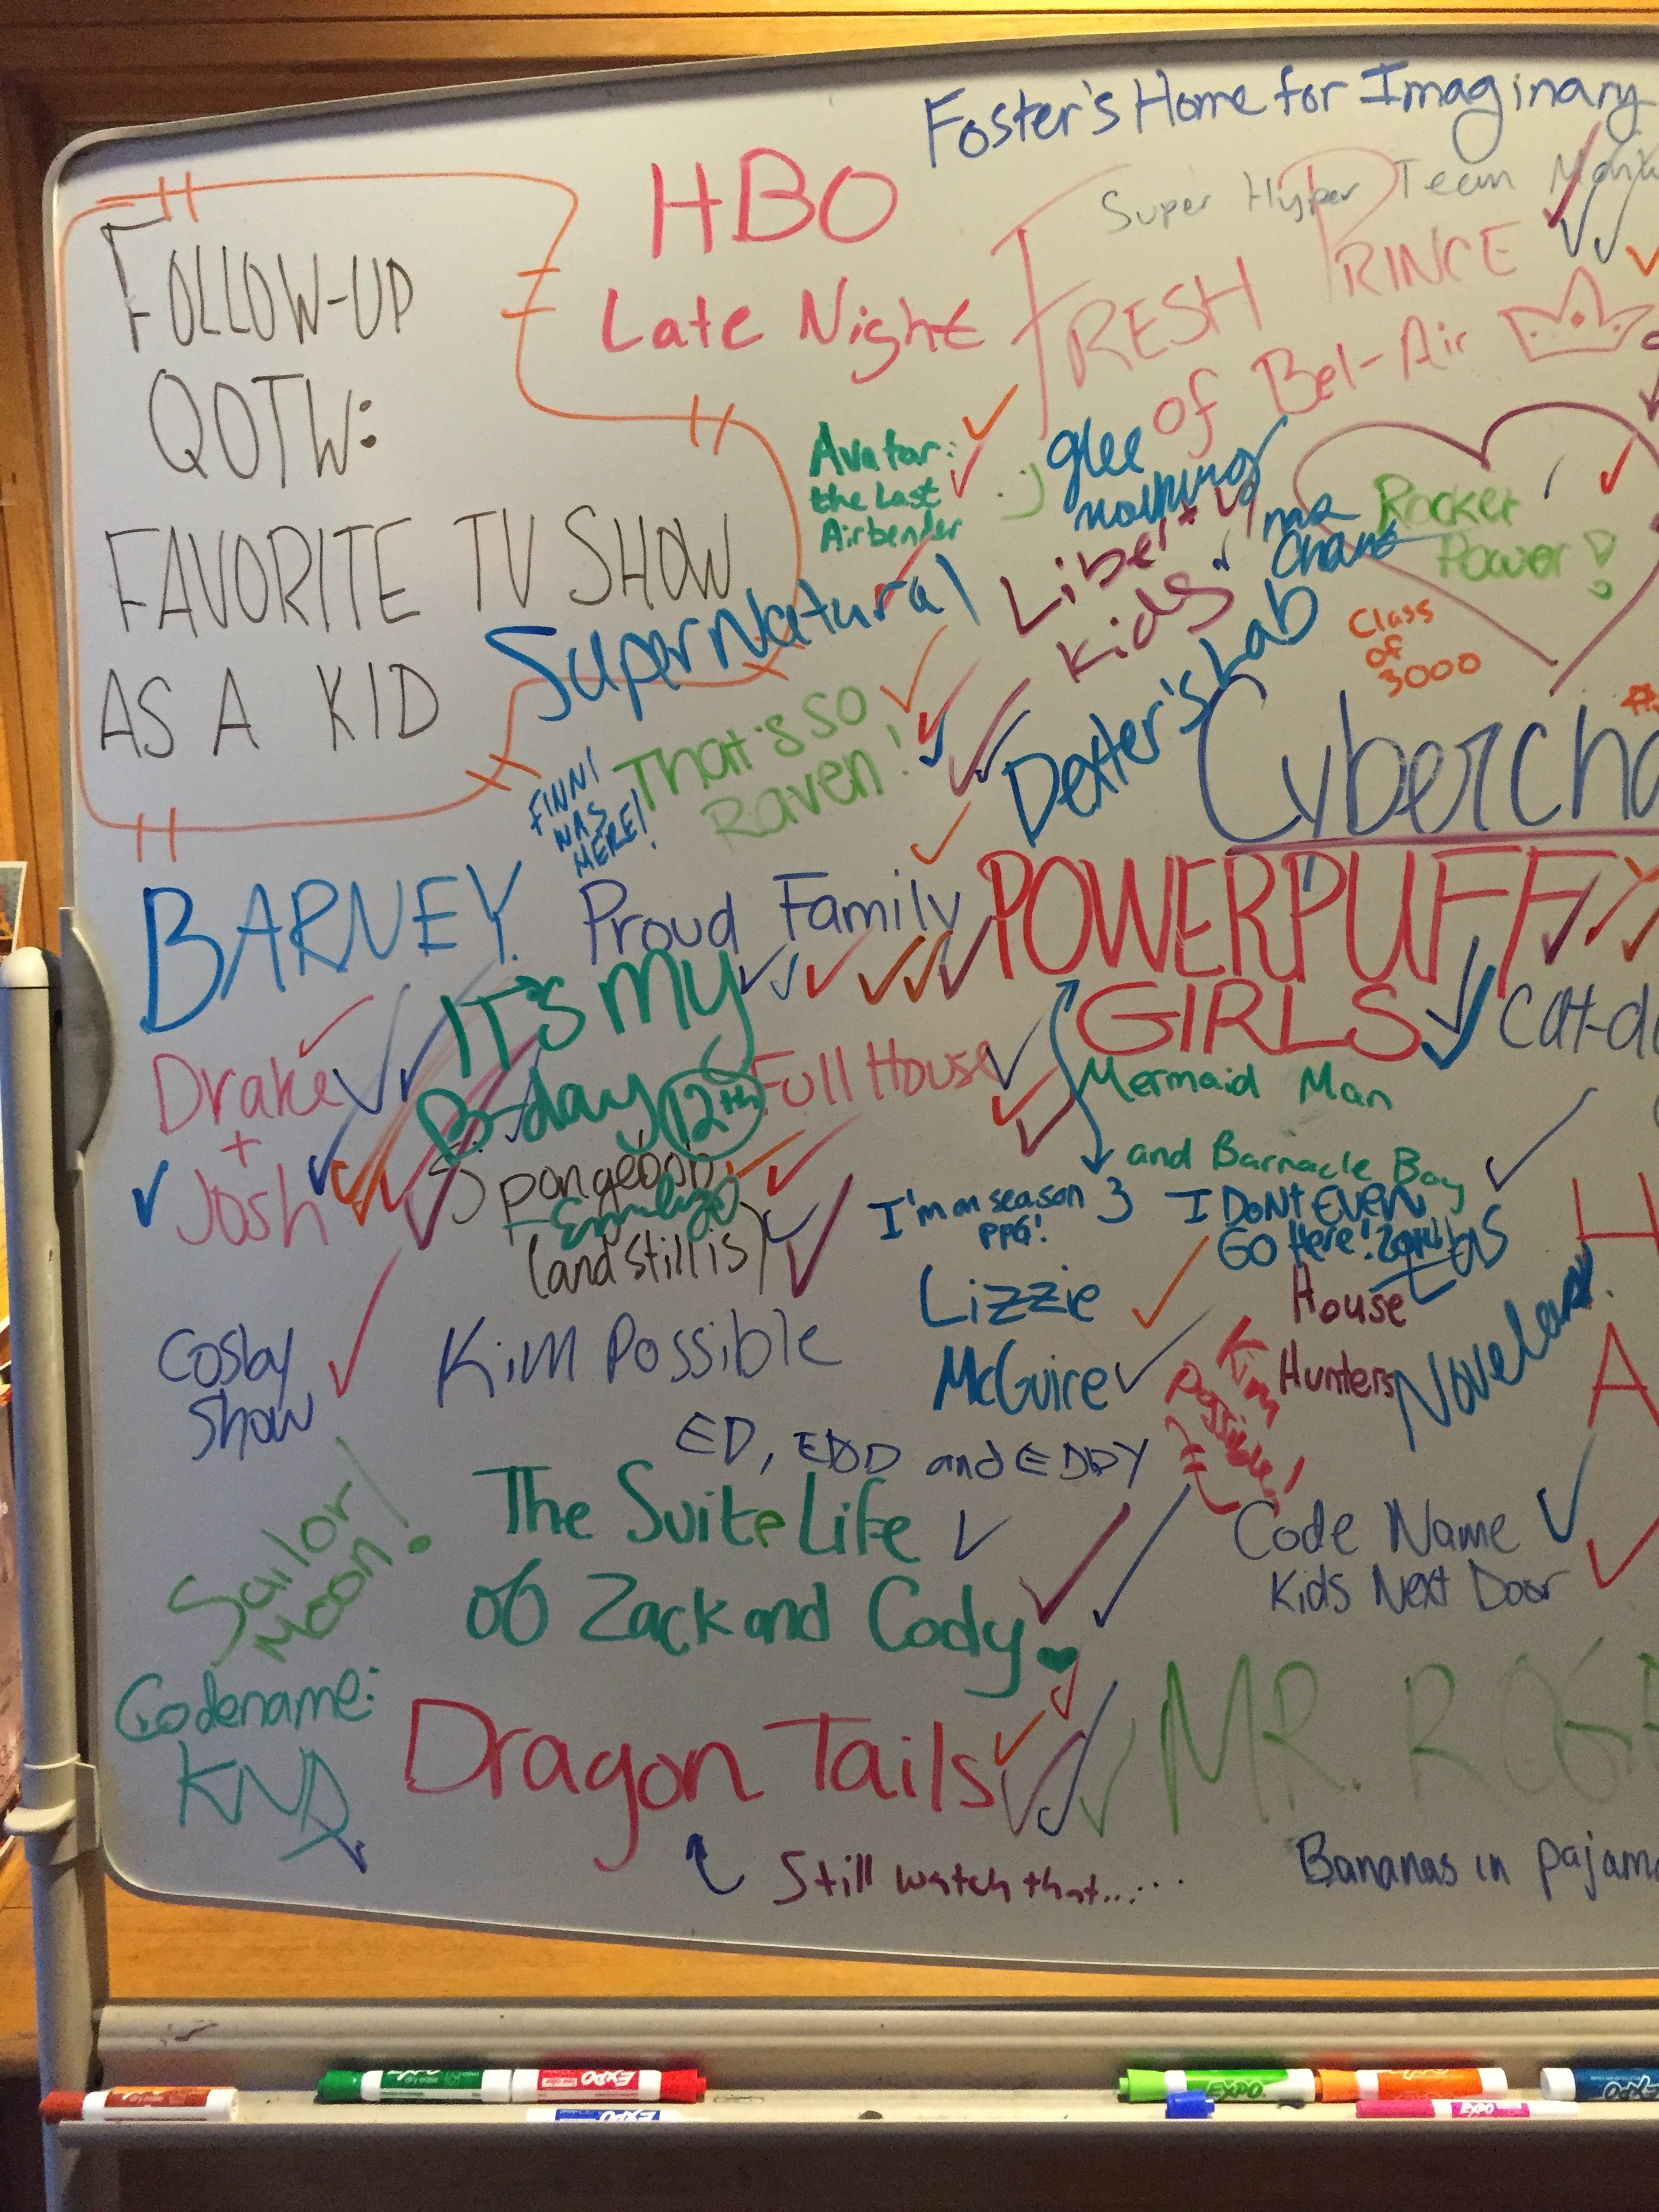 Foster's Home for Imaginary
Super Hyper Team
HBO
Late Night
FRESH PRINCE
of Bel-Air
FOLLOW-UP
QOTW:
FAVORITE TV SHOW
AS A KID
Avatar:
the Last
Airbender
glee
Rocket
Power
Kids
Class
of
3000
SuperNatural
Dexter's Lab
That's so
Raven!
FINN!
WAS
HERE!
BARNEY
Proud Family
POWERPUFF
GIRLS
IT'S MY
B-day 12th
Drake
+
Josh
Full House
Mermaid Man
and Barnacle Boy
Spongebob
(and still is)
I'm on season 3
PPG!
I DONT EVEN
GO Here!
Lizzie
McGuire
House
Hunters
Novelas
Cosby
Show
Kim Possible
Kim
Possible!
ED, EDD and EDDY
The Suite Life
of Zack and Cody
Code Name
Kids Next Door
Sailor
Moon!
Codename:
KND
Dragon Tails
Still watch that......
MR.
Bananas in
EXPO
EXPO
EXPO
EXPO
EXPO